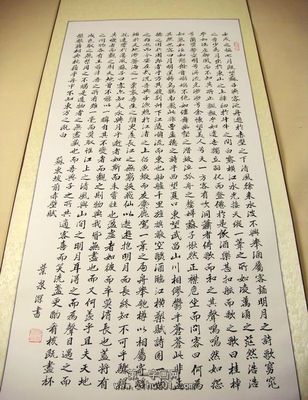 壬戌之秋七月既望蘇子與客泛舟遊於赤壁之下清風徐來水波不興舉酒屬客誦明月之詩歌窈窕
之章少焉月出於東山之上徘徊於斗牛之間白露橫江水光接天縱一葦之所如凌萬頃之茫然浩浩
乎如馮虛御風而不知其所止飄飄乎如遺世獨立羽化而登仙於是飲酒樂甚扣舷而歌之歌曰桂棹
兮蘭槳擊空明兮泝流光渺渺兮予懷望美人兮天一方客有吹洞簫者倚歌而和之其聲嗚嗚然如怨
如慕如泣如訴餘音嫋嫋不絕如縷舞幽壑之潛蛟泣孤舟之嫠婦蘇子愀然正襟危坐而問客曰何為
其然也客曰月明星稀烏鵲南飛此非曹孟德之詩乎西望夏口東望武昌山川相繆鬱乎蒼蒼此非孟
德之困於周郎者乎方其破荊州下江陵順流而東也舳艫千里旌旗蔽空釃酒臨江橫槊賦詩固一世
之雄也而今安在哉況吾與子漁樵於江渚之上侶魚蝦而友麋鹿駕一葉之扁舟舉匏樽以相屬寄蜉蝣
於天地渺滄海之一粟哀吾生之須臾羨長江之無窮挾飛仙以遨遊抱明月而長終知不可乎驟得
託遺響於悲風蘇子曰客亦知夫水與月乎逝者如斯而未嘗往也盈虛者如彼而卒莫消長也蓋將自
其變者而觀之則天地曾不能以一瞬自其不變者而觀之則物與我皆無盡也而又何羨乎且夫天地
之間物各有主苟非吾之所有雖一毫而莫取惟江上之清風與山間之明月耳得之而為聲目遇之而
成色取之無禁用之不竭是造物者之無盡藏也而吾與子之所共適客喜而笑洗盞更酌肴核既盡杯
盤狼籍相與枕藉乎舟中不知東方之既白
蘇東坡前赤壁賦
葉泉書